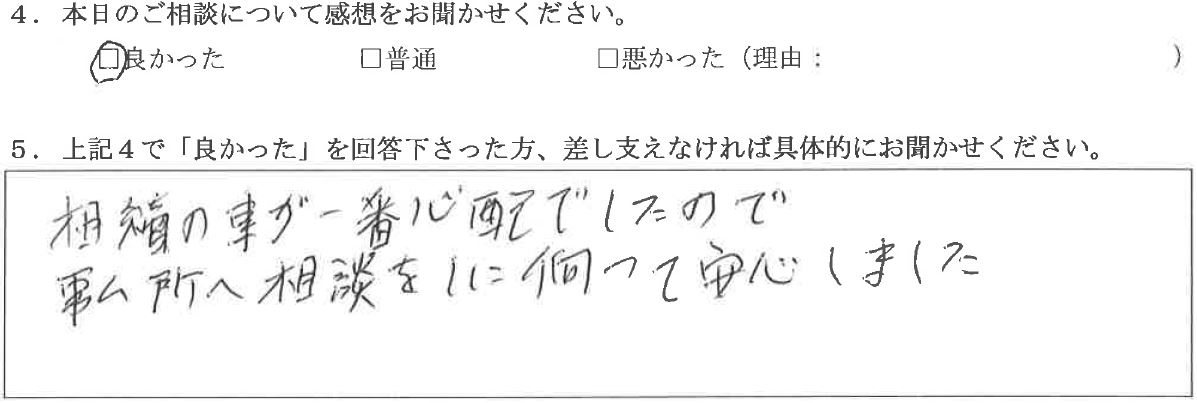 ４．本日のご相談について感想をお聞かせください。
□良かった　□普通　□悪かった（理由：　）
５．上記４で「良かった」を回答下さった方、差し支えなければ具体的にお聞かせください。
相続の事が一番心配でしたので
事ム所へ相談をしに伺って安心しました